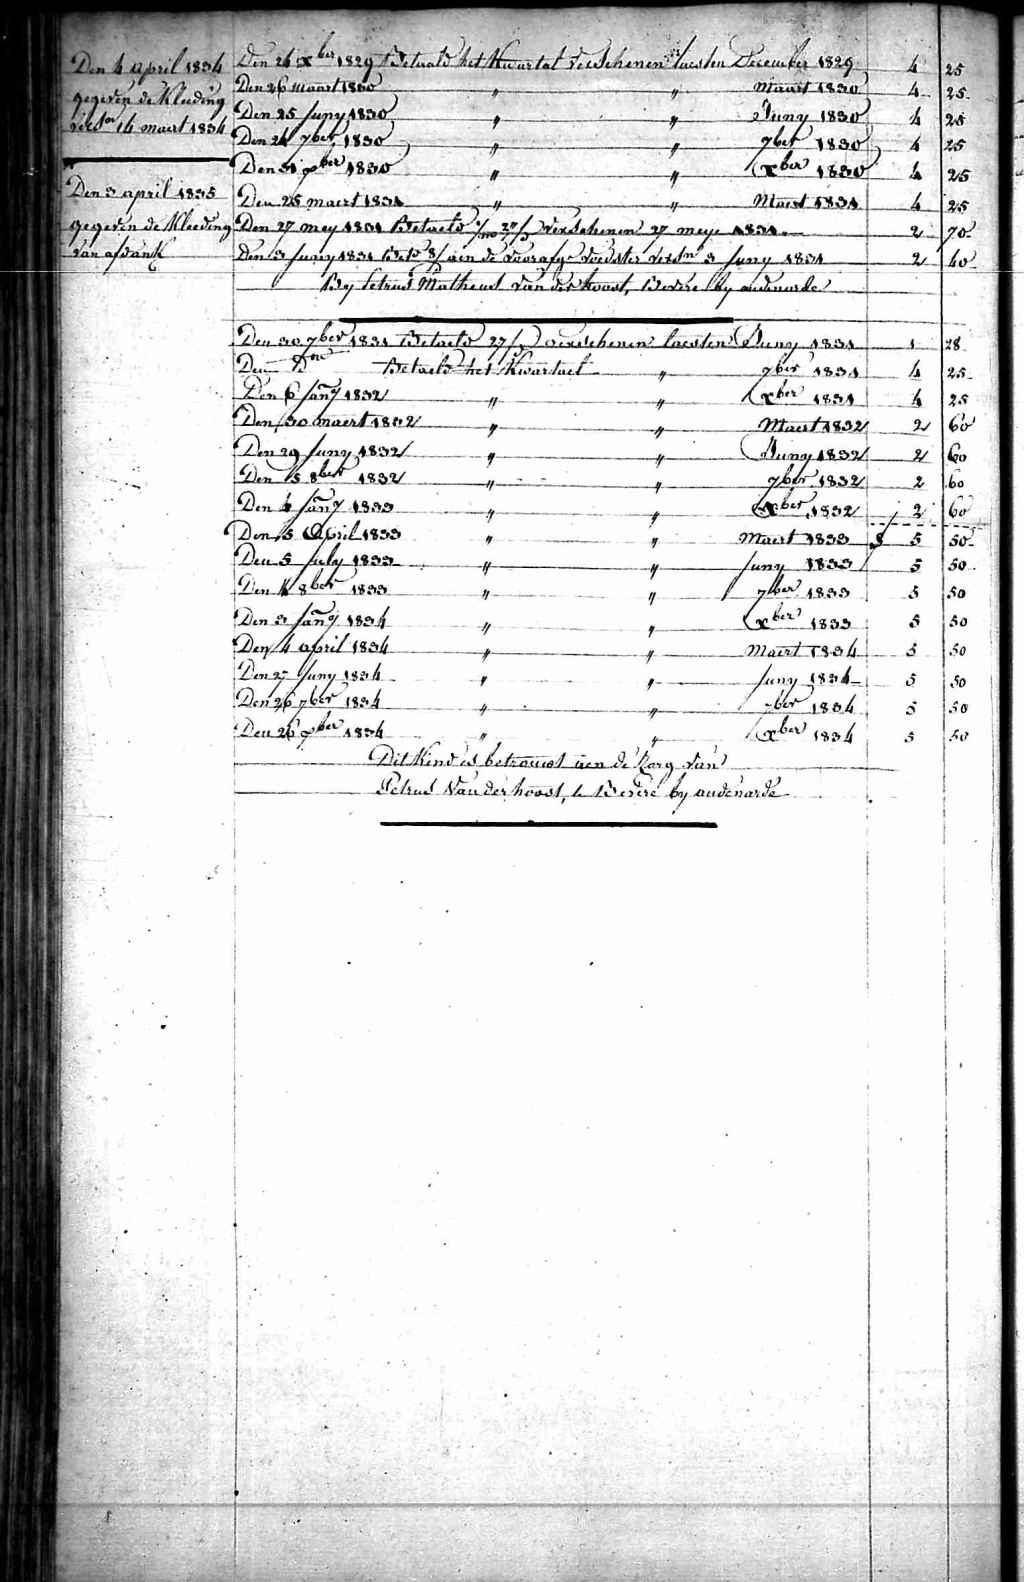 Den 4 april 1834
gegeven de Kleeding
14 maert 1834
Den 3 april 1835
gegeven de Kleeding
van afdank
Den 24 xber 1829 Betaald het Kwartal verschenen laesten December 1829 4 25
Den 26 maart 1830 " " Maart 1830 4 25
Den 25 Juny 1830 " " Juny 1830 4 25
Den 24 7ber 1830 " " 7ber 1830 4 25
Den 31 xber 1830 " " xber 1830 4 25
Den 25 maert 1831 " " Maert 1831 4 25
Den 27 mey 1831 Betaeld verschenen 27 meye 1831 2 70
Den 3 Juny 1831 aen de voedster 3 Juny 1831 2 40
By Petrus Matheus Van der hoost, Bevere by audenarde
Den 30 7ber 1831 Betaeld 27/ verschenen laesten Juny 1831 1 28
Den Do Betaeld het Kwartael " 7ber 1831 4 25
Den 6 Jany 1832 " " xber 1831 4 25
Den 30 maert 1832 " " Maert 1832 2 60
Den 29 Juny 1832 " " Juny 1832 2 60
Den 5 8ber 1832 " " 7ber 1832 2 60
Den 4 Jany 1833 " " xber 1832 2 60
Den 5 April 1833 " " Maert 1833 5 50
Den 5 July 1833 " " Juny 1833 5 50
Den 4 8ber 1833 " " 7ber 1833 5 50
Den 3 Jany 1834 " " xber 1833 5 50
Den 4 april 1834 " " Maert 1834 5 50
Den 27 Juny 1834 " " Juny 1834 5 50
Den 26 7ber 1834 " " 7ber 1834 5 50
Den 26 xber 1834 " " xber 1834 5 50
Dit Kind is betrouwt aen de Zorg van
Petrus Van der hoost, te Bevere by audenarde